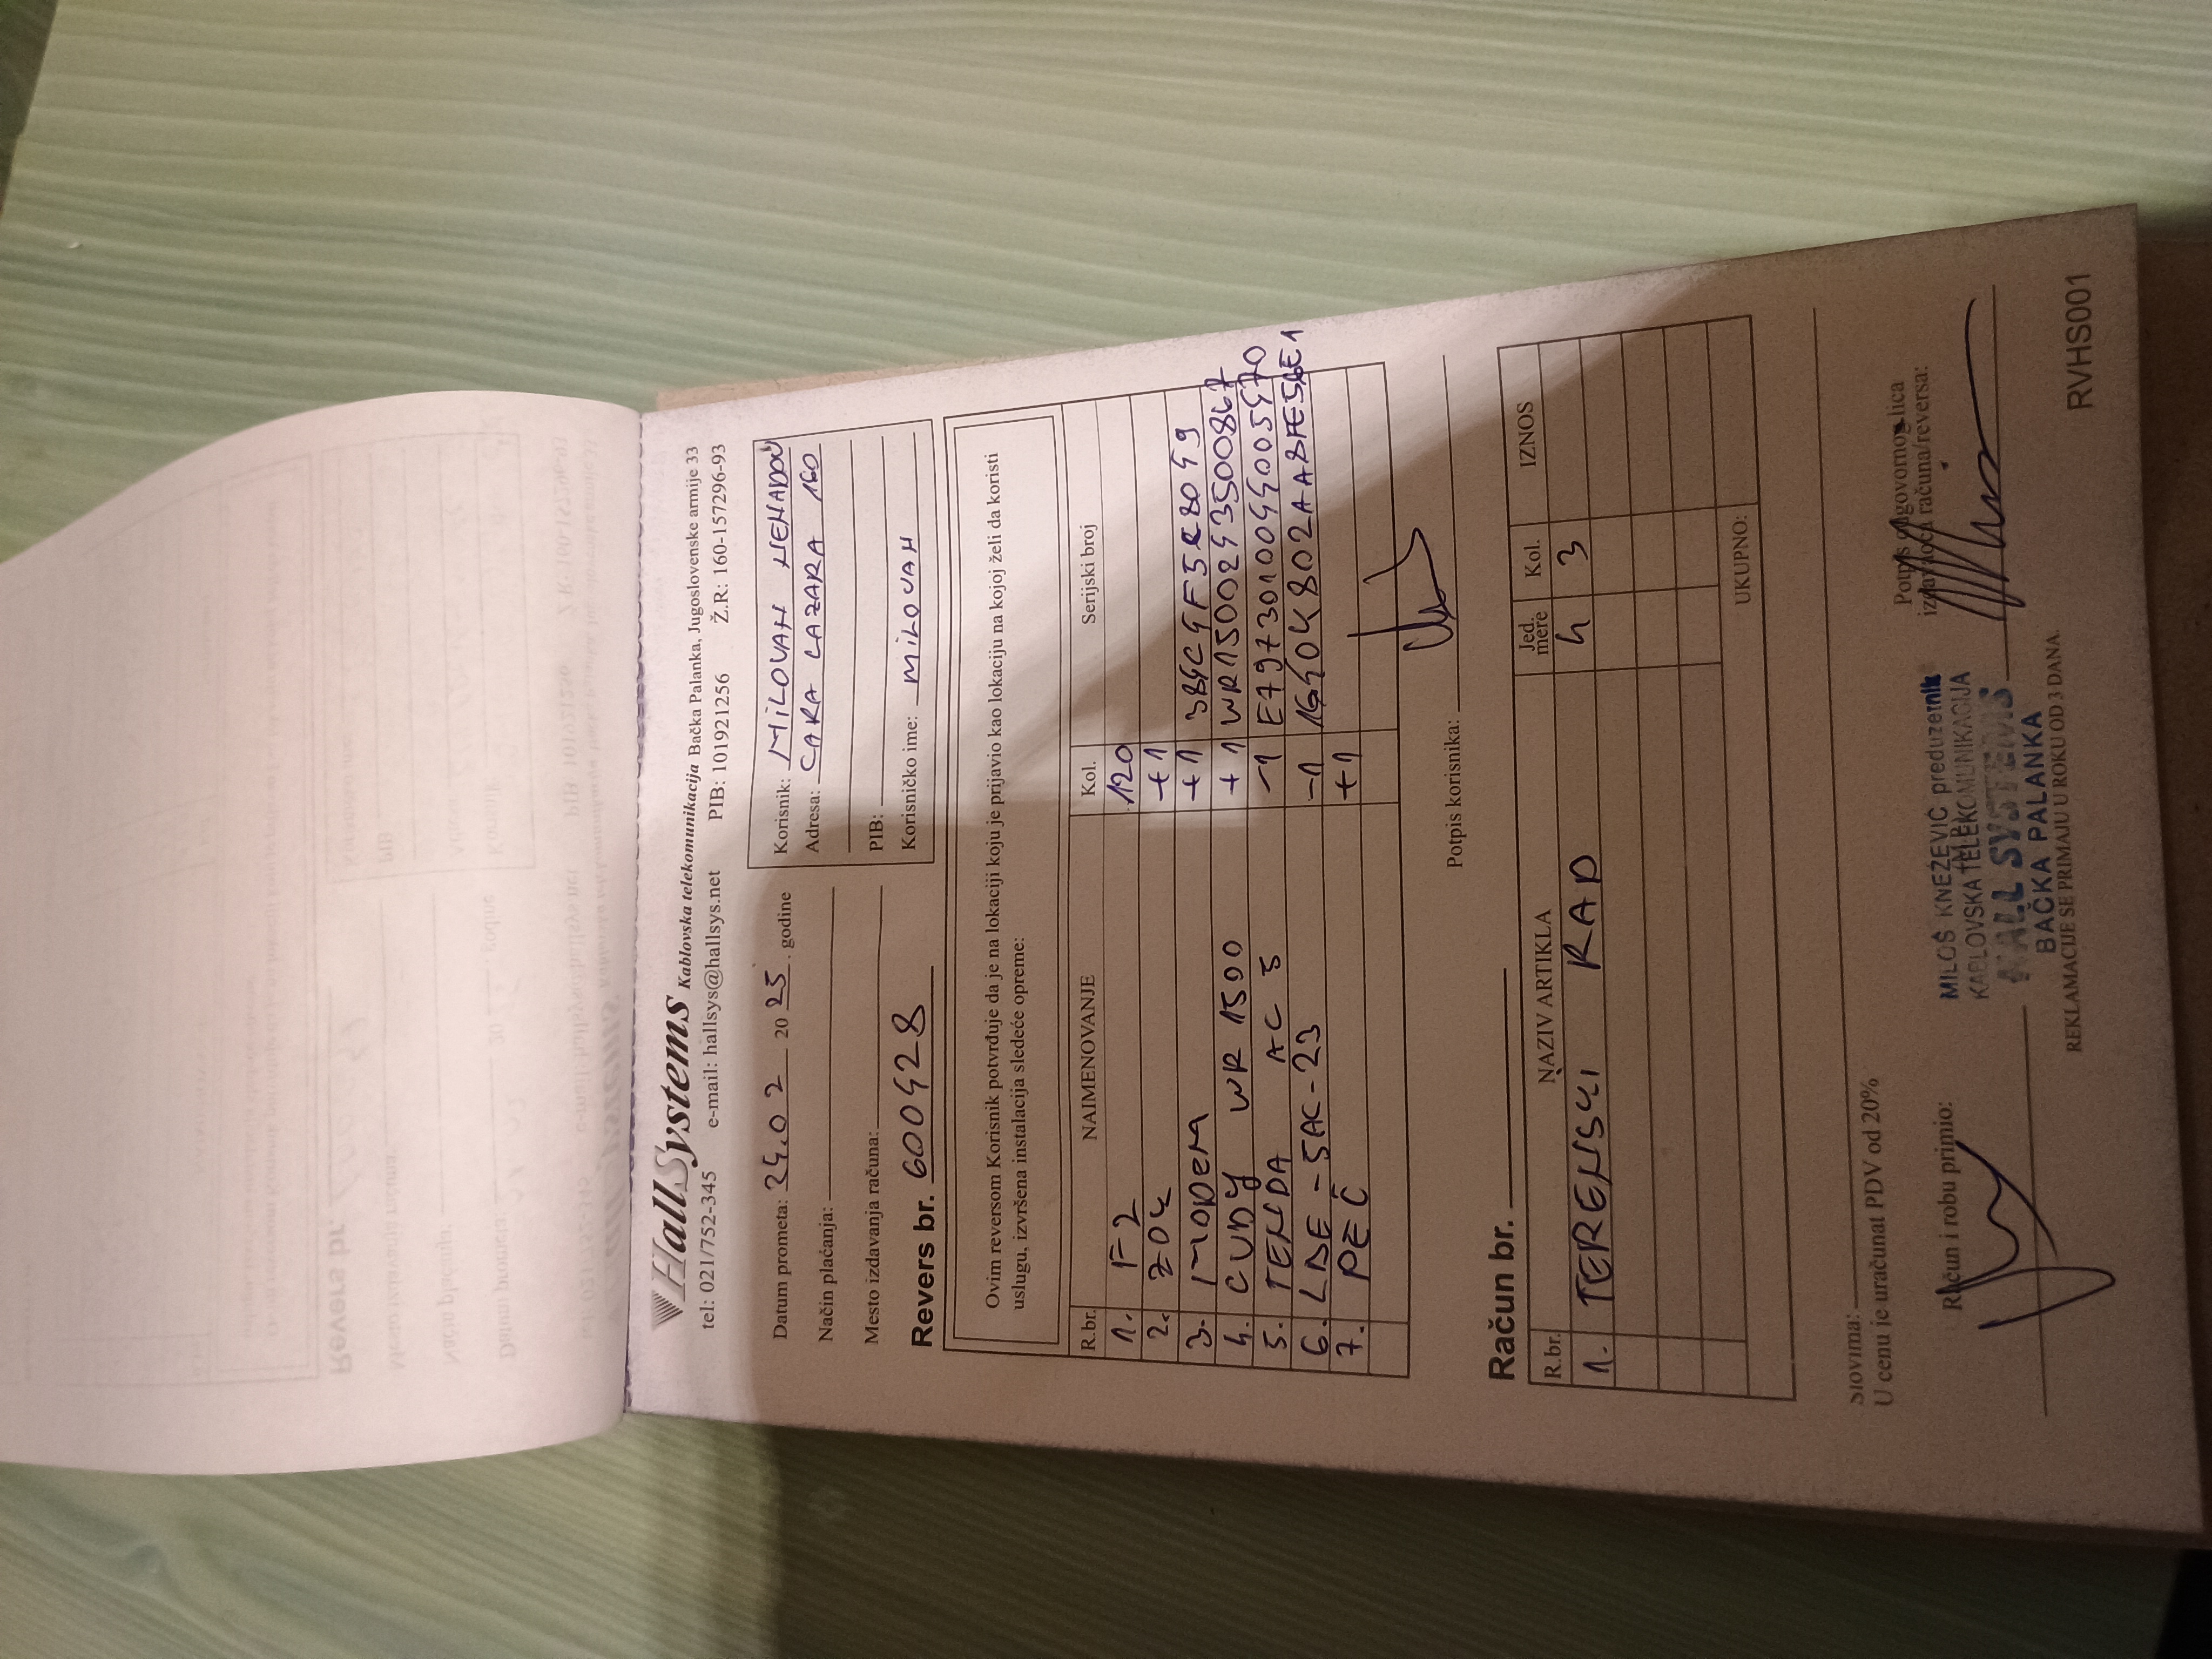 HallSystems Kablovska telekomunikacija Bačka Palanka, Jugoslovenske armije 33
tel: 021/752-345 e-mail: hallsys@hallsys.net PIB: 101921256 Ž.R: 160-157296-93
Datum prometa: 24.02 2025. godine
Način plaćanja:
Mesto izdavanja računa:
Revers br. 600428
Korisnik: MILOVAN NENADOV
Adresa: CARA LAZARA 160
PIB:
Korisničko ime: MILOVAN
Ovim reversom Korisnik potvrđuje da je na lokaciji koju je prijavio kao lokaciju na kojoj želi da koristi
uslugu, izvršena instalacija sledeće opreme:
R.br. NAIMENOVANJE Kol. Serijski broj
1. F2 120
2. ZOK +1
3. MODEM +1
4. CUDY WR 1500 +1 WR1500243500867
5. TENDA AC 5 -1
6. LBE-5AC-23 -1
7. PEĆ +1
Potpis korisnika:
Račun br.
R.br. NAZIV ARTIKLA Jed. mere Kol. IZNOS
1. TERENSKI RAD h 3
UKUPNO:
Slovima:
U cenu je uračunat PDV od 20%
Račun i robu primio:
Potpis odgovornog lica
izdavaoca računa/reversa:
MILOŠ KNEŽEVIĆ preduzetnik
KABLOVSKA TELEKOMUNIKACIJA
HALL SYSTEMS
BAČKA PALANKA
REKLAMACIJE SE PRIMAJU U ROKU OD 3 DANA.
RVHS001